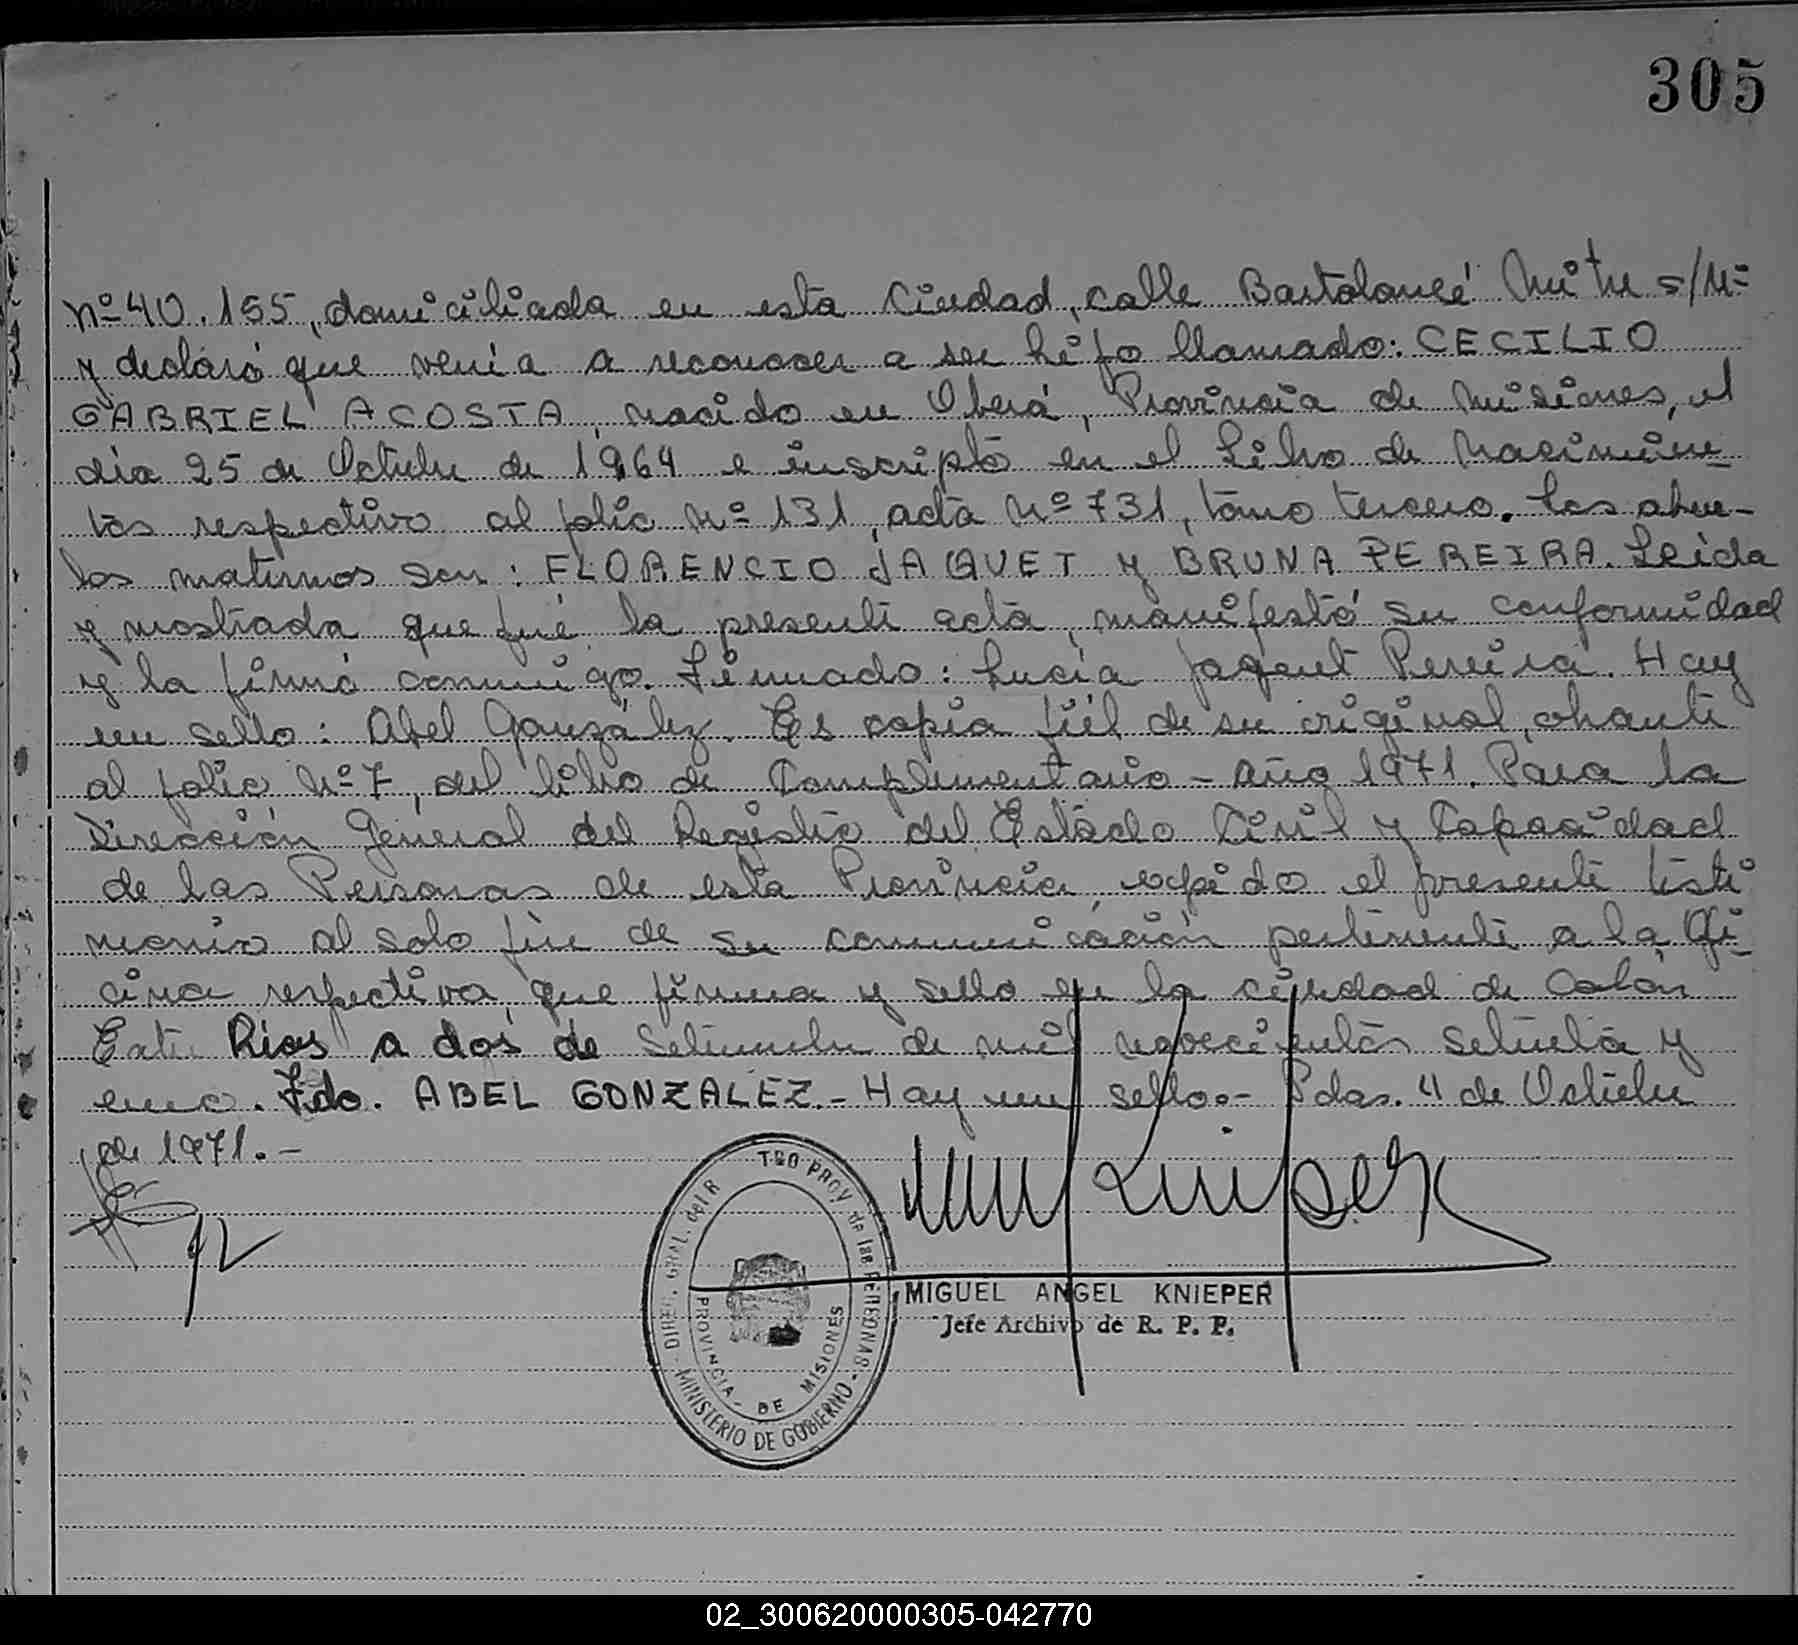 305
nº 40.155, domiciliada en esta Ciudad, calle Bartolomé Mitre s/Nº
y declaró que venía a reconocer a su hijo llamado: CECILIO
GABRIEL ACOSTA, nacido en Oberá, Provincia de Misiones, el
día 25 de Octubre de 1964 e inscripto en el Libro de Nacimien-
tos respectivo al folio Nº 131, acta Nº 731, tomo tercero. Los abue-
los maternos son: FLORENCIO JAQUET y BRUNA PEREIRA. Leida
y mostrada que fué la presente acta, manifestó su conformidad
y la firmó conmigo. Firmado: Lucía Jaquet Pereira. Hay
un sello: Abel González. Es copia fiél de su original, obante
al folio Nº 7, del libro de Complementario - Año 1971. Para la
Dirección General del Registro del Estado Civil y Capacidad
de las Personas de esta Provincia, expido el presente testi
monio al solo fin de su comunicación pertinente a la Ofi-
cina respectiva, que firma y sello en la ciudad de Colón
Entre Rios a dos de Setiembre de mil novecientos setenta y
uno. Fdo. ABEL GONZALEZ.- Hay un sello.- Pdas. 4 de Octubre
de 1971.-
DIREC. GRAL. del R TRO PROV de las PERSONAS - MINISTERIO DE GOBIERNO -
PROVINCIA - DE MISIONES
MIGUEL ANGEL KNIEPER
Jefe Archivo de R. P. P.
02_300620000305-042770